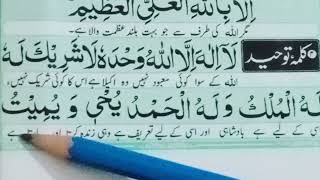 اِلَّا بِاللهِ الْعَلِيِّ الْعَظِيْمِ
مگر اللہ کی طرف سے جو بہت بلند عظمت والا ہے۔
کلمۂ توحید لَآ اِلٰهَ اِلَّا اللهُ وَحْدَهٗ لَا شَرِيْكَ لَهٗ
اللہ کے سوا کوئی معبود نہیں وہ اکیلا ہے اس کا کوئی شریک نہیں
لَهُ الْمُلْكُ وَلَهُ الْحَمْدُ يُحْيٖ وَيُمِيْتُ
اسی کے لیے ہے بادشاہی اور اسی کے لیے تعریف ہے وہی زندہ کرتا اور